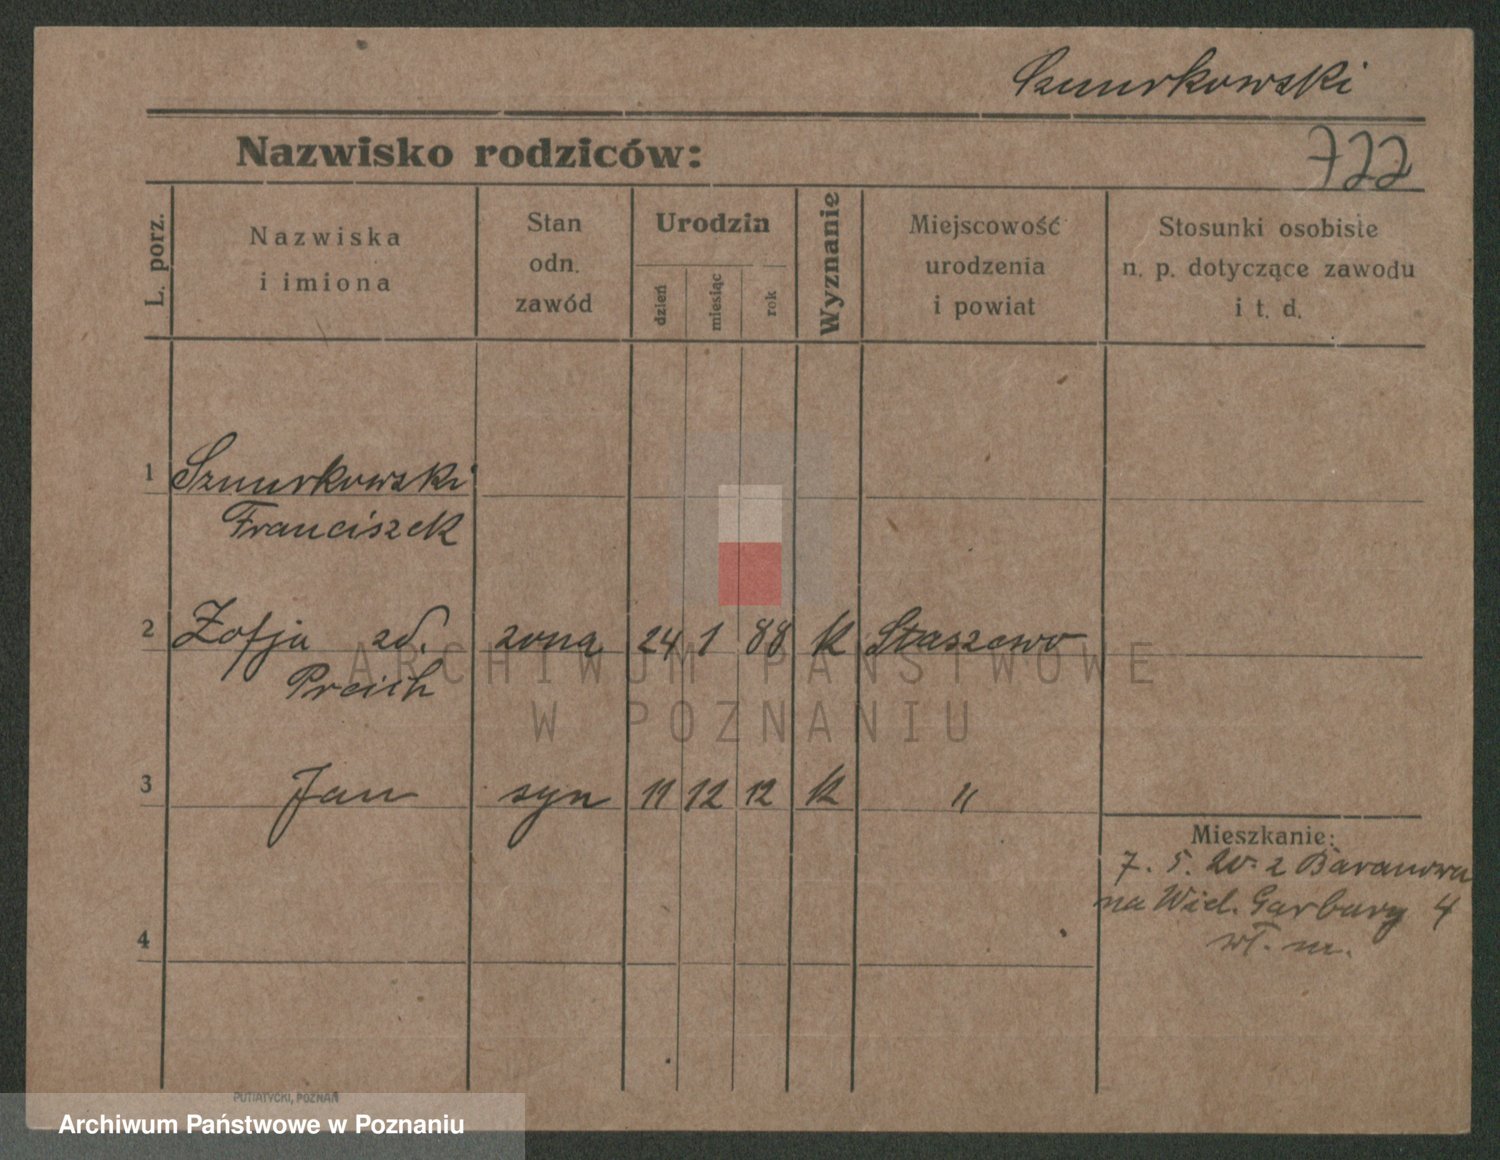 Szmurkowski
Nazwisko rodziców:
722
L. porz.
Nazwiska
i imiona
Stan
odn.
zawód
Urodzin
dzień
miesiąc
rok
Wyznanie
Miejscowość
urodzenia
i powiat
Stosunki osobiste
n. p. dotyczące zawodu
i t. d.
1 Szmurkowski
Franciszek
2 Zofja zd. żona 24 1 88 k Staszewo
3 Jan syn 11 12 12 k "
Mieszkanie:
7. 5. 20. z Baranowa
na Wiel. Garbary 4
wł. m.
4
ARCHIWUM PAŃSTWOWE
W POZNANIU
PUTIATYCKI, POZNAŃ
Archiwum Państwowe w Poznaniu